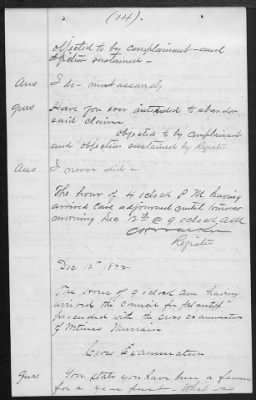 (14).
objected to by complainant and
objection sustained —
Ans I do - most assuredly
Ques Have you ever intended to abandon
said claim
objected to by complainant
and objection sustained by Register
Ans I never did —
The hour of 4 oclock P M having
arrived case adjourned until tomorrow
morning Dec 12th @ 9 oclock AM
Register
Dec 12th 1872
The hour of 9 oclock am having
arrived the Council for plaintiff
proceeded with the cross examination
of Witness
Cross Examination
Ques You state you have been a farmer
for a year past - What was